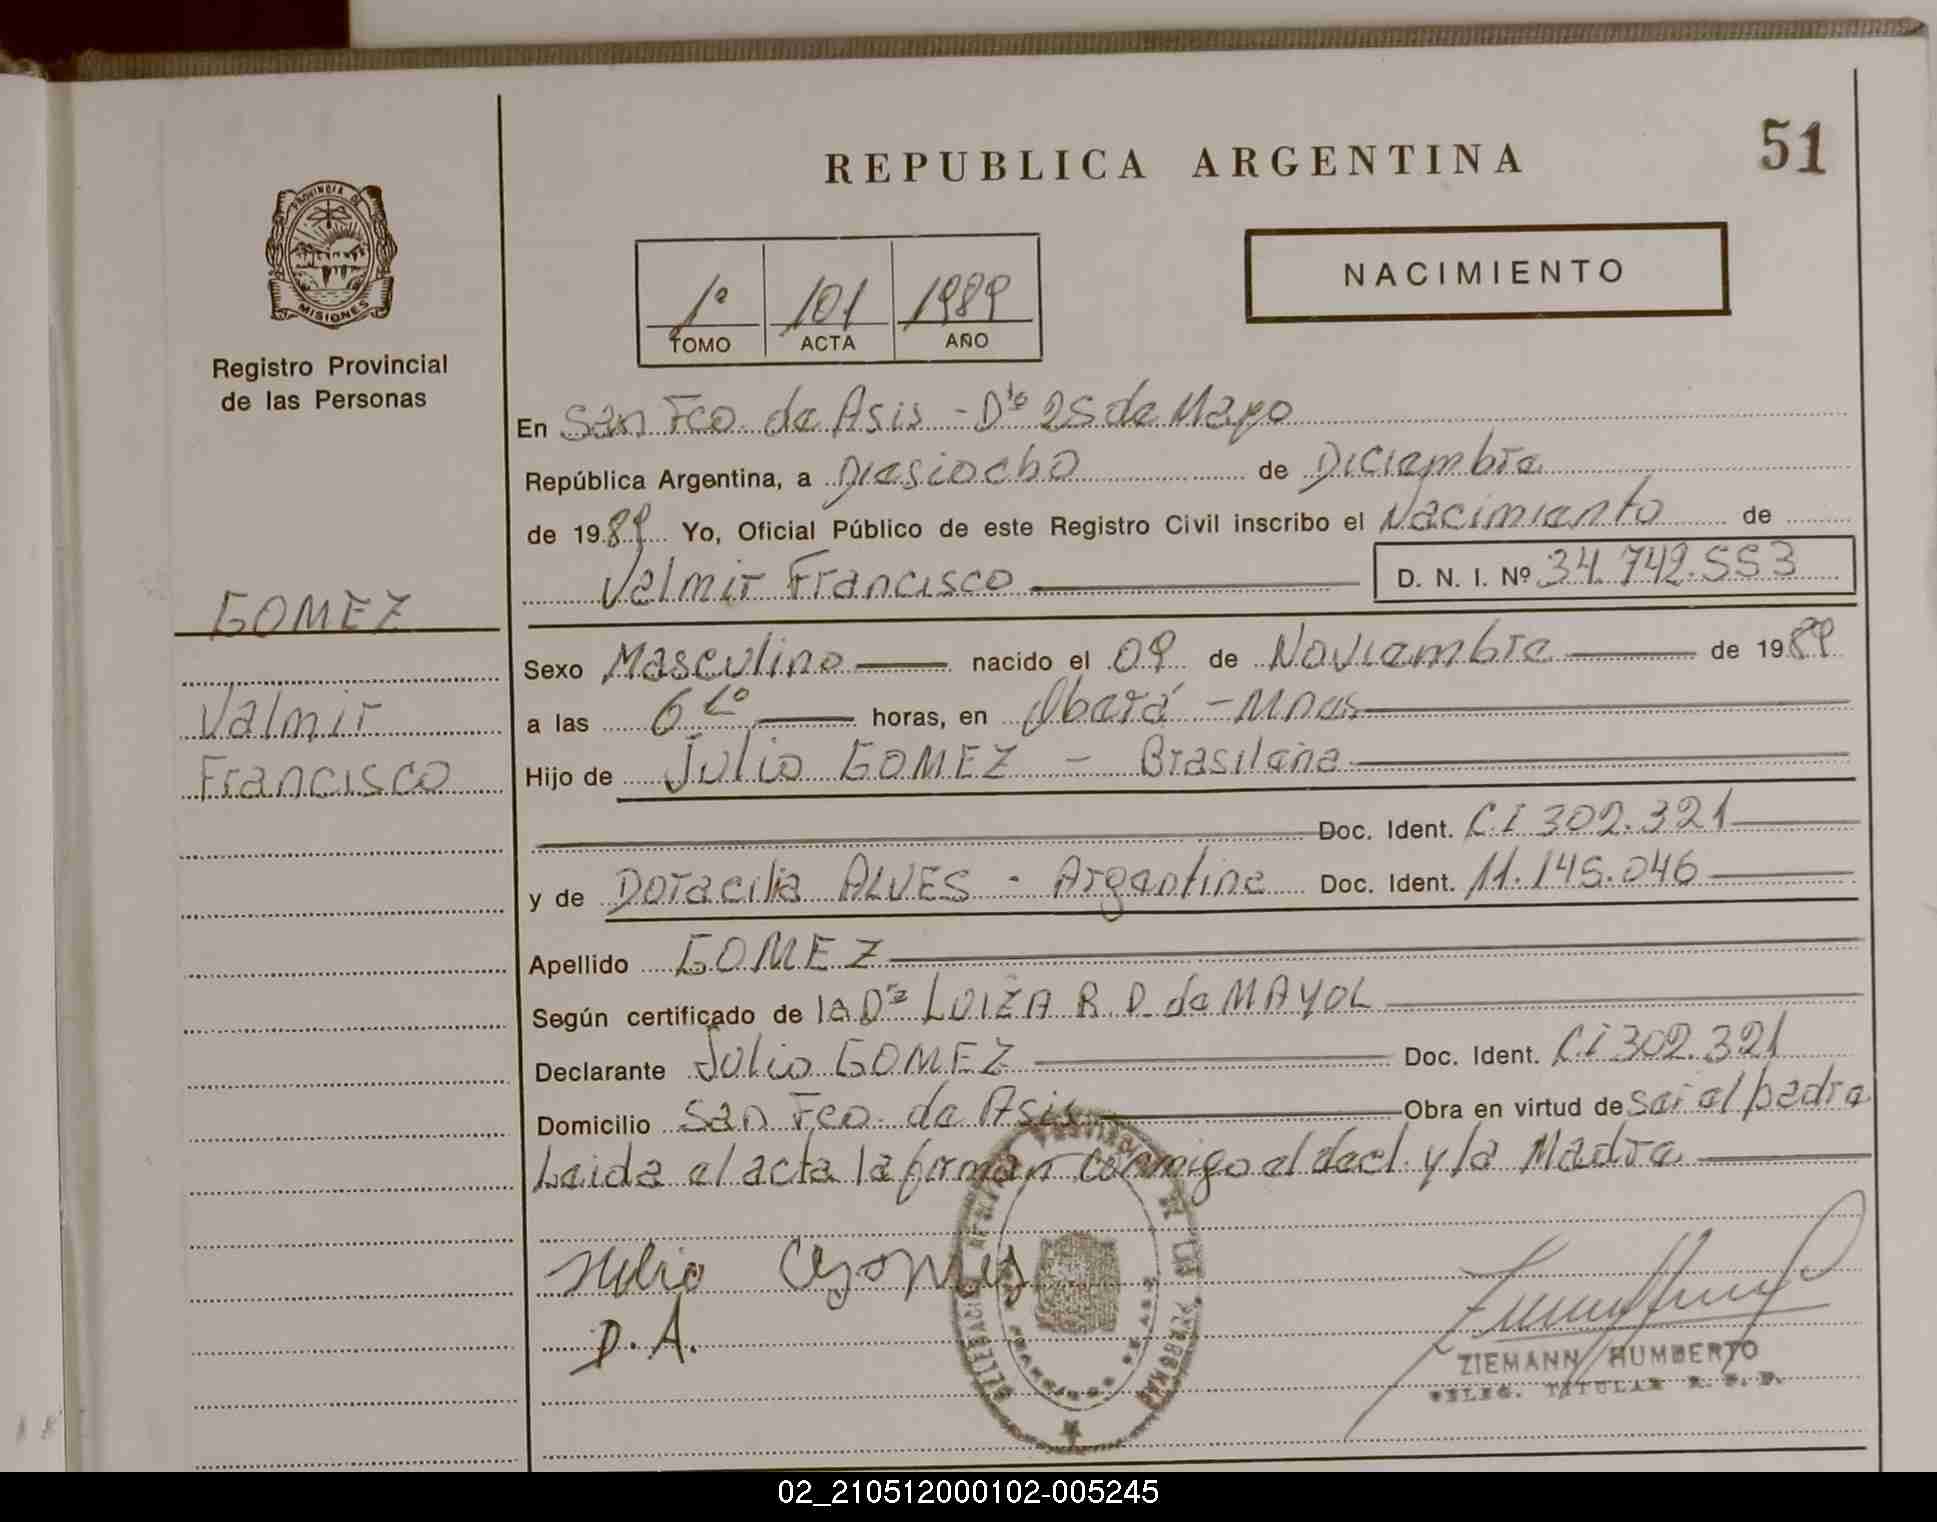 REPUBLICA ARGENTINA
51
PROVINCIA DE
MISIONES
Registro Provincial
de las Personas
1º 101 1989
TOMO ACTA AÑO
NACIMIENTO
En San Fco. de Asis - Dto 25 de Mayo
República Argentina, a Diesiocho de Diciembre
de 1989 Yo, Oficial Público de este Registro Civil inscribo el Nacimiento de
Valmir Francisco D. N. I. Nº 34.742.553
GOMEZ
Valmir
Francisco
Sexo Masculino nacido el 09 de Noviembre de 1989
a las 6 horas, en Oberá - Mnes
Hijo de Julio GOMEZ - Brasileña
Doc. Ident. C.I 302.321
y de Doracilia ALVES - Argentina Doc. Ident. 11.145.046
Apellido GOMEZ
Según certificado de la Dra LUIZA R. D. de MAYOL
Declarante Julio GOMEZ Doc. Ident. C.I 302.321
Domicilio San Fco. de Asis Obra en virtud de ser el padre
Leida el acta la firman conmigo el decl. y la Madre
D.A.
ZIEMANN HUMBERTO
DELEG. TITULAR R. P. P.
02_210512000102-005245